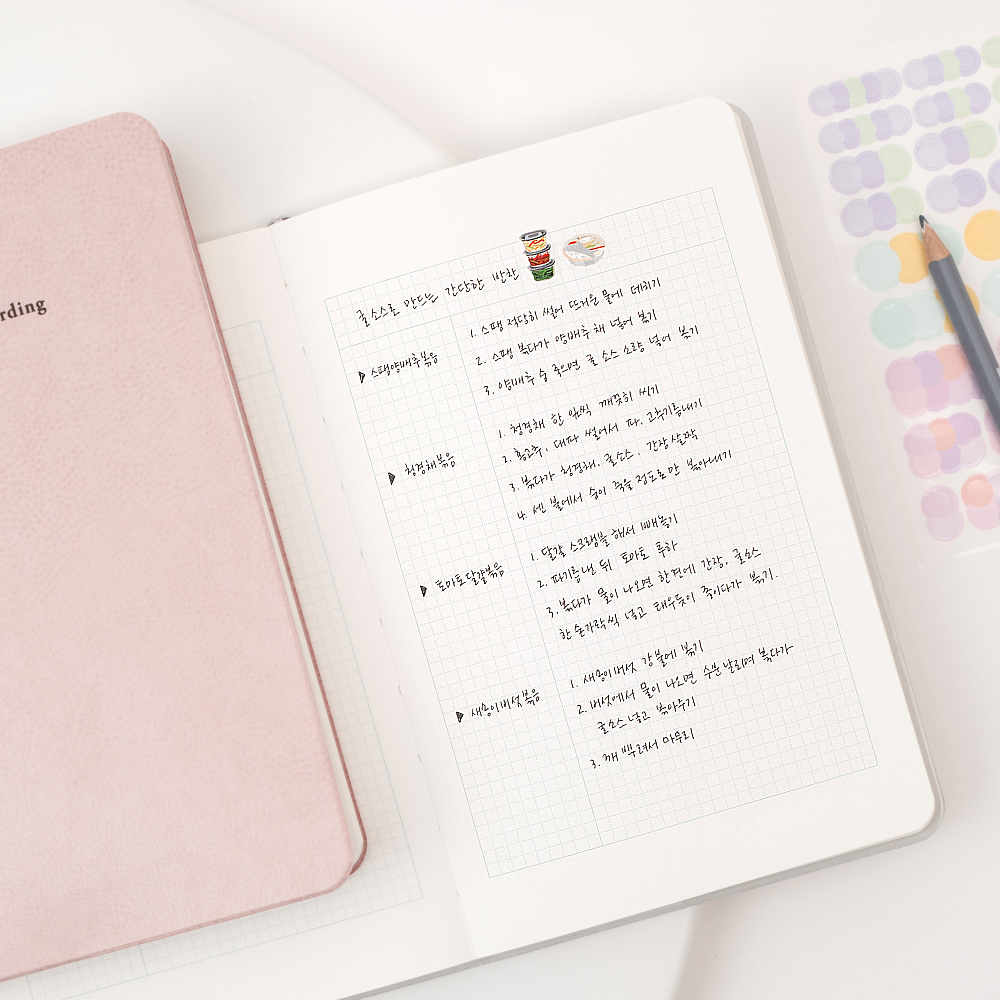 rding
굴소스로 만드는 간단한 반찬
▶ 스팸양배추볶음
1. 스팸 적당히 썰어 뜨거운 물에 데치기
2. 스팸 볶다가 양배추 채 넣어 볶기
3. 양배추 숨 죽으면 굴 소스 소량 넣어 볶기
▶ 청경채볶음
1. 청경채 한 잎씩 깨끗히 씻기
2. 홍고추, 대파 썰어서 파, 고추기름내기
3. 볶다가 청경채, 굴소스, 간장 살짝
4. 센 불에서 숨이 죽을 정도로만 볶아내기
▶ 토마토달걀볶음
1. 달걀 스크램블 해서 빼놓기
2. 파기름 낸 뒤 토마토 투하
3. 볶다가 물이 나오면 한켠에 간장, 굴소스
한 숟가락씩 넣고 태우듯이 졸이다가 볶기.
▶ 새송이버섯볶음
1. 새송이버섯 강불에 볶기
2. 버섯에서 물이 나오면 수분 날리며 볶다가
굴소스 넣고 볶아주기
3. 깨 뿌려서 마무리